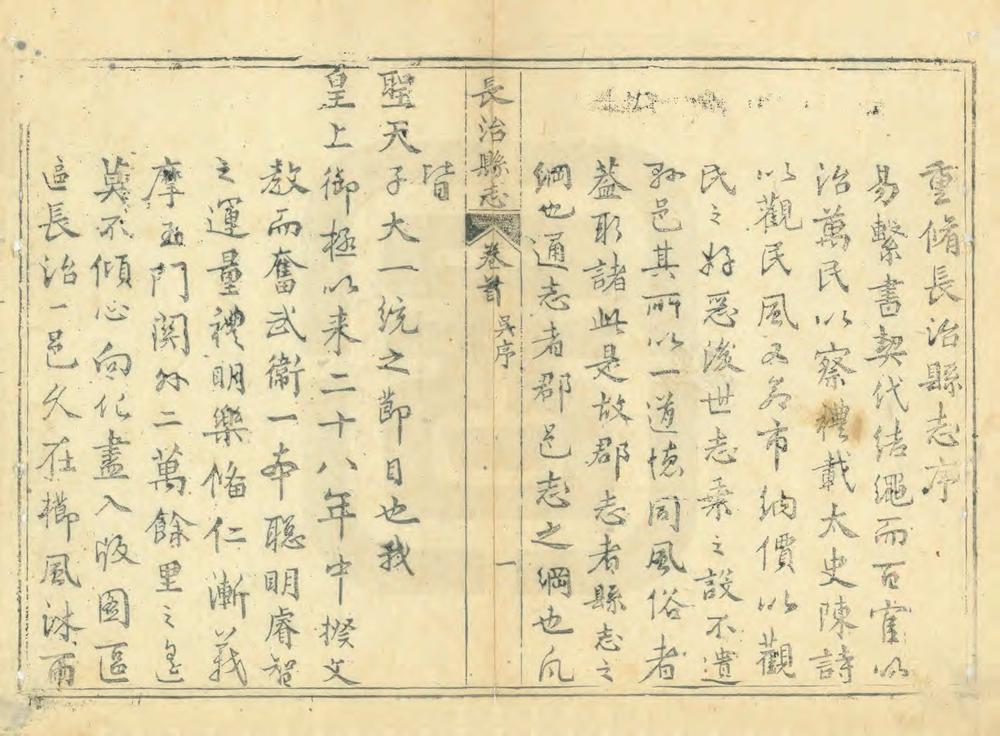 重脩長治縣志序
易繫書契代結繩而百官以
治萬民以察禮載太史陳詩
以觀民風又命市納價以觀
民之好惡後世志乘之設不遺
縣邑其所以一道德同風俗者
葢取諸此是故郡志者縣志之
綱也通志者郡邑志之綱也凡
長治縣志
卷首
吳序
一
皆
聖天子大一統之節目也我
皇上御極以来二十八年中揆文
教而奮武衛一本聰明睿智
之運量禮明樂備仁漸義
摩玉門関外二萬餘里之遥
莫不傾心向化盡入版图區
區長治一邑久在櫛風沐雨